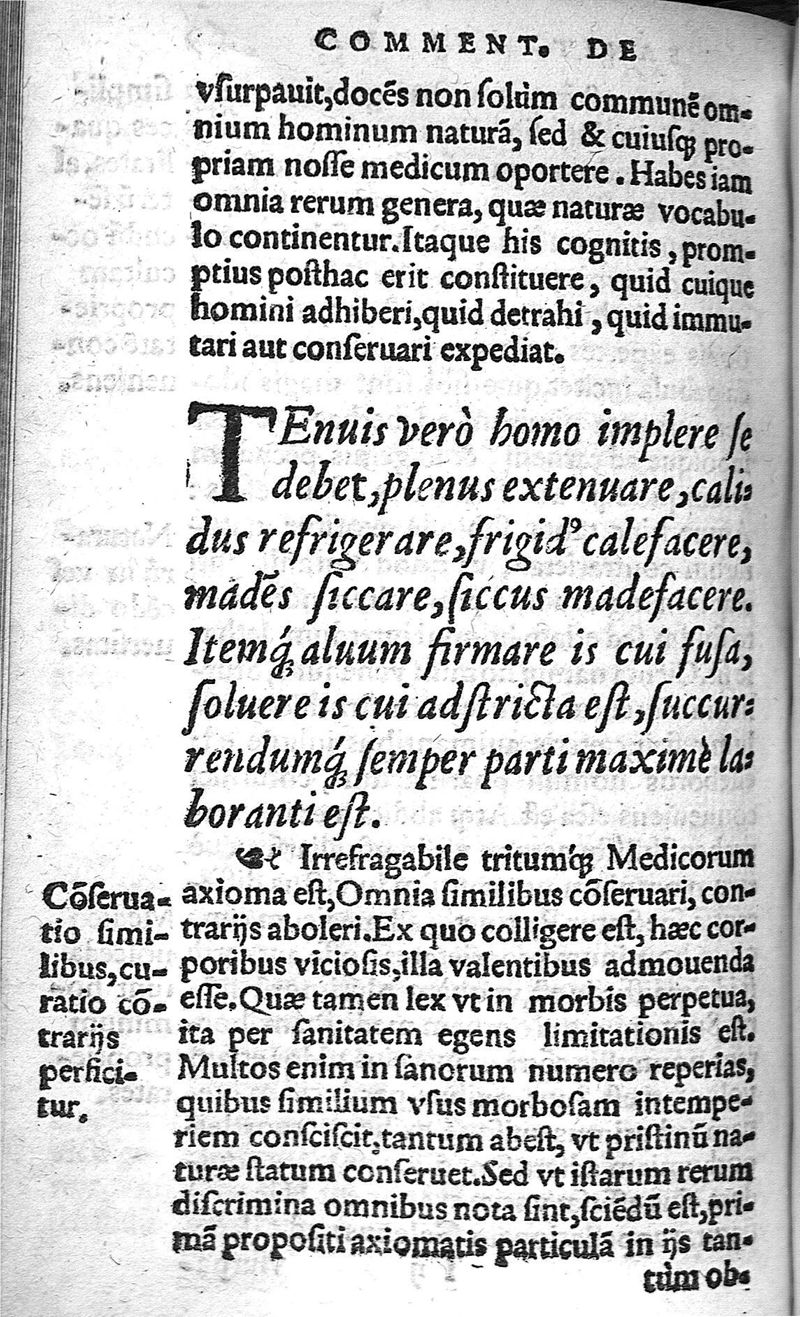 COMMENT. DE
vſurpauit,docẽs non ſolùm communẽ om-
nium hominum naturã, ſed & cuiuſq́ꝫ pro-
priam noſſe medicum oportere. Habes iam
omnia rerum genera, quæ naturæ vocabu-
lo continentur. Itaque his cognitis, prom-
ptius poſthac erit conſtituere, quid cuique
homini adhiberi, quid detrahi, quid immu-
tari aut conſeruari expediat.
TEnuis verò homo implere ſe
debet, plenus extenuare, cali-
dus refrigerare, frigidꝰ calefacere,
madẽs ſiccare, ſiccus madefacere.
Itemq́ꝫ aluum firmare is cui fuſa,
ſoluere is cui adſtricta eſt, ſuccur-
rendumq́ꝫ ſemper parti maximè la-
boranti eſt.
☙ Irrefragabile tritumq́ꝫ Medicorum
axioma eſt, Omnia ſimilibus cõſeruari, con-
trarijs aboleri. Ex quo colligere eſt, hæc cor-
poribus vicioſis, illa valentibus admouenda
eſſe. Quæ tamen lex vt in morbis perpetua,
ita per ſanitatem egens limitationis eſt.
Multos enim in ſanorum numero reperias,
quibus ſimilium vſus morboſam intempe-
riem conſciſcit, tantum abeſt, vt priſtinũ na-
turæ ſtatum conſeruet. Sed vt iſtarum rerum
diſcrimina omnibus nota ſint, ſciẽdũ eſt, pri-
mã propoſiti axiomatis particulã in ijs tan-
tùm ob-
Cõſerua-
tio ſimi-
libus, cu-
ratio cõ-
trarijs
perfici-
tur.